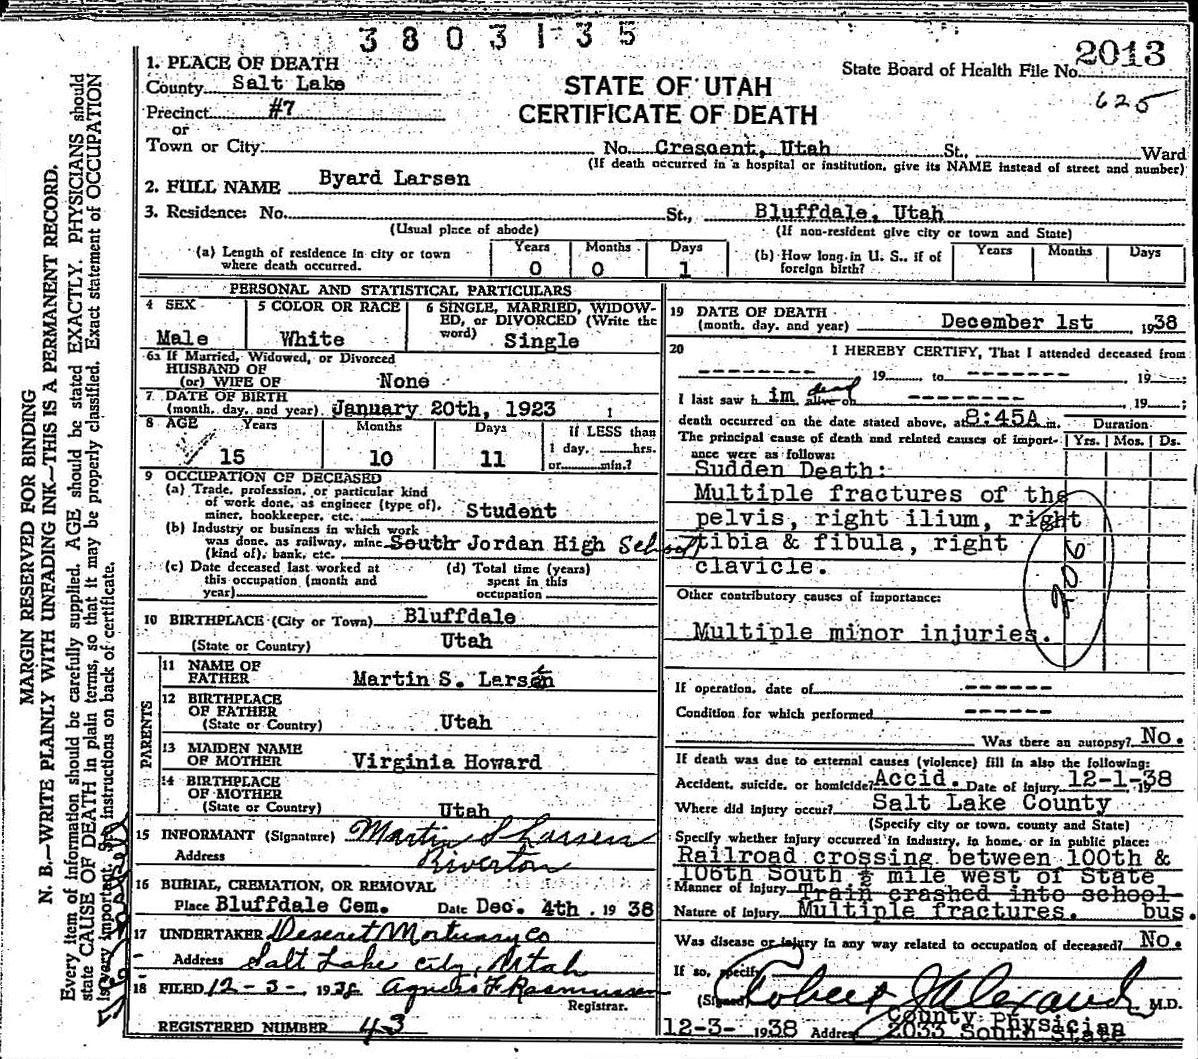 3803135
2013
State Board of Health File No.
625
STATE OF UTAH
CERTIFICATE OF DEATH
1. PLACE OF DEATH
County Salt Lake
Precinct #7
or
Town or City: No. Crescent, Utah St., Ward
(If death occurred in a hospital or institution, give its NAME instead of street and number)
2. FULL NAME Byard Larsen
3. Residence: No. St., Bluffdale, Utah
(Usual place of abode) (If non-resident give city or town and State)
(a) Length of residence in city or town where death occurred. Years 0 Months 0 Days 1
(b) How long in U. S., if of foreign birth? Years Months Days
PERSONAL AND STATISTICAL PARTICULARS
4 SEX Male
5 COLOR OR RACE White
6 SINGLE, MARRIED, WIDOW-
ED, or DIVORCED (Write the
word) Single
6a If Married, Widowed, or Divorced
HUSBAND OF
(or) WIFE OF None
7 DATE OF BIRTH
(month, day, and year) January 20th, 1923
8 AGE Years Months Days If LESS than
15 10 11 1 day, hrs.
or min.?
9 OCCUPATION OF DECEASED
(a) Trade, profession, or particular kind
of work done, as engineer (type of),
miner, bookkeeper, etc. Student
(b) Industry or business in which work
was done, as railway, mine South Jordan High School
(kind of), bank, etc.
(c) Date deceased last worked at
this occupation (month and
year)
(d) Total time (years)
spent in this
occupation
10 BIRTHPLACE (City or Town) Bluffdale
(State or Country) Utah
PARENTS
11 NAME OF
FATHER Martin S. Larsen
12 BIRTHPLACE
OF FATHER
(State or Country) Utah
13 MAIDEN NAME
OF MOTHER Virginia Howard
14 BIRTHPLACE
OF MOTHER
(State or Country) Utah
15 INFORMANT (Signature) Martin S Larsen
Address Riverton
16 BURIAL, CREMATION, OR REMOVAL
Place Bluffdale Cem. Date Dec. 4th, 1938
17 UNDERTAKER Deseret Mortuary Co
Address Salt Lake City, Utah
18 FILED 12-3-1938 Agnes F Rasmussen
Registrar.
REGISTERED NUMBER 43
19 DATE OF DEATH
(month, day, and year) December 1st 1938
20 I HEREBY CERTIFY, That I attended deceased from
19 to 19 ;
I last saw him dead alive on 19 ;
death occurred on the date stated above, at 8:45A m.
Duration
The principal cause of death and related causes of import-
ance were as follows:
Yrs. Mos. Ds.
Sudden Death:
Multiple fractures of the
pelvis, right ilium, right
tibia & fibula, right
clavicle.
206
Other contributory causes of importance:
Multiple minor injuries.
If operation, date of
Condition for which performed
Was there an autopsy? No.
If death was due to external causes (violence) fill in also the following:
Accident, suicide, or homicide? Accid. Date of injury 12-1-38, 19
Where did injury occur? Salt Lake County
(Specify city or town, county and State)
Specify whether injury occurred in industry, in home, or in public place:
Railroad crossing between 100th &
106th South ½ mile west of State
Manner of Injury Train crashed into school-
Nature of Injury Multiple fractures. bus.
Was disease or injury in any way related to occupation of deceased? No.
If so, specify
(Signed) Robert J Alexander M.D.
County Physician
12-3-1938 Address 2033 South State
MARGIN RESERVED FOR BINDING
N. B.—WRITE PLAINLY WITH UNFADING INK—THIS IS A PERMANENT RECORD.
Every item of information should be carefully supplied. AGE should be stated EXACTLY. PHYSICIANS should
state CAUSE OF DEATH in plain terms, so that it may be properly classified. Exact statement of OCCUPATION
is very important. See instructions on back of certificate.